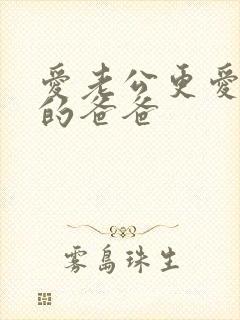 愛老公更愛
的爸爸
雾島珠生